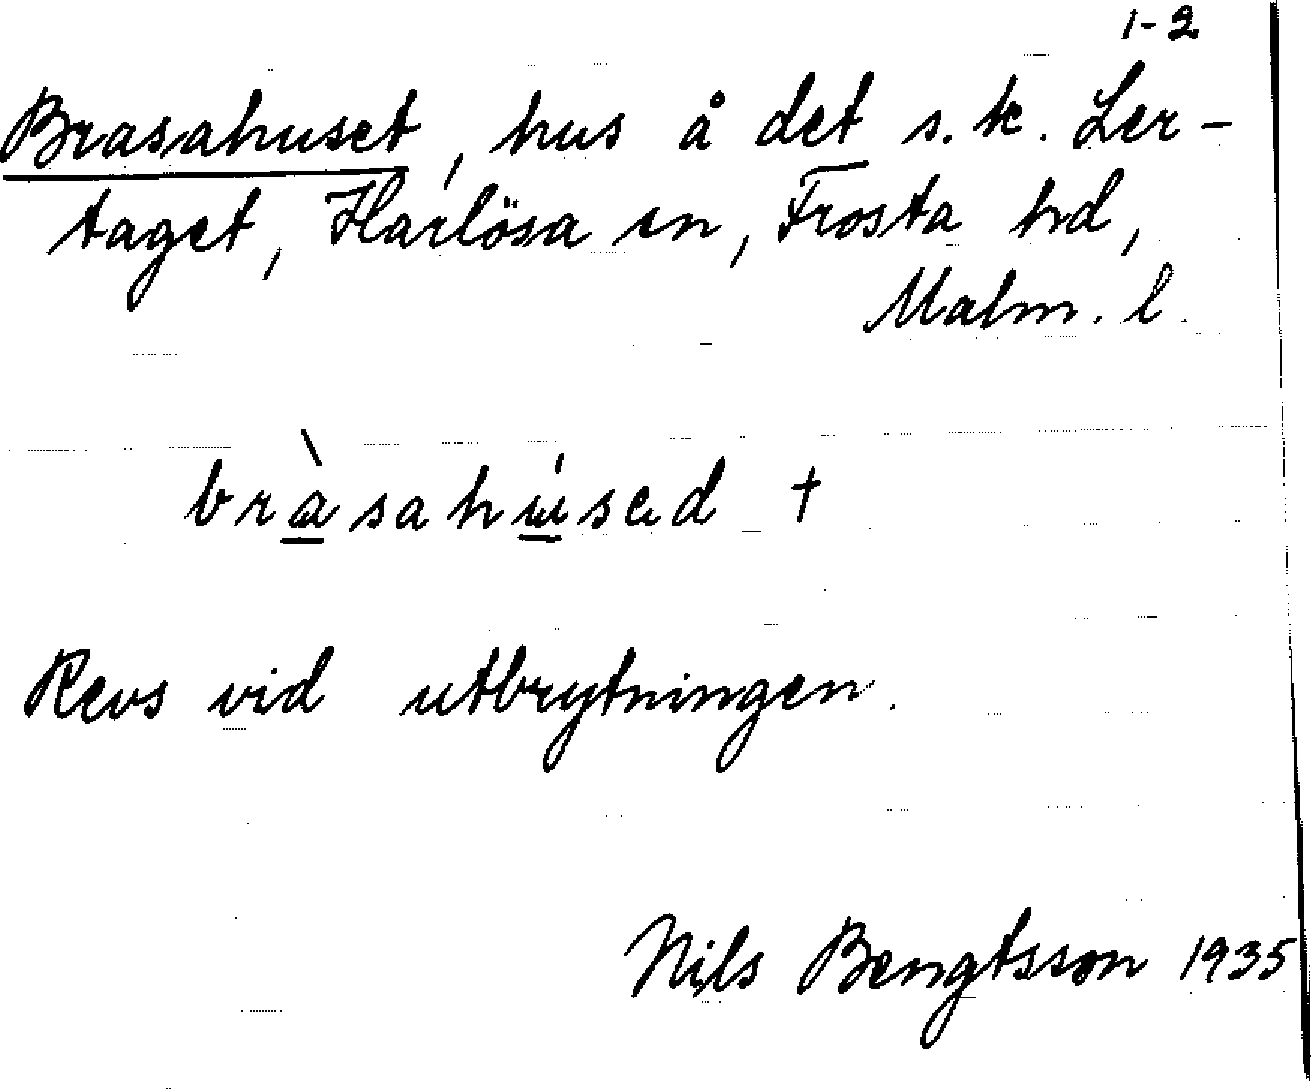 1-2
Brasahuset, hus å det s.k. Ler-
taget, Harlösa sn, Frosta hd,
Malm. l.
bràsahúsed †
Revs vid utbrytningen.
Nils Bengtsson 1935